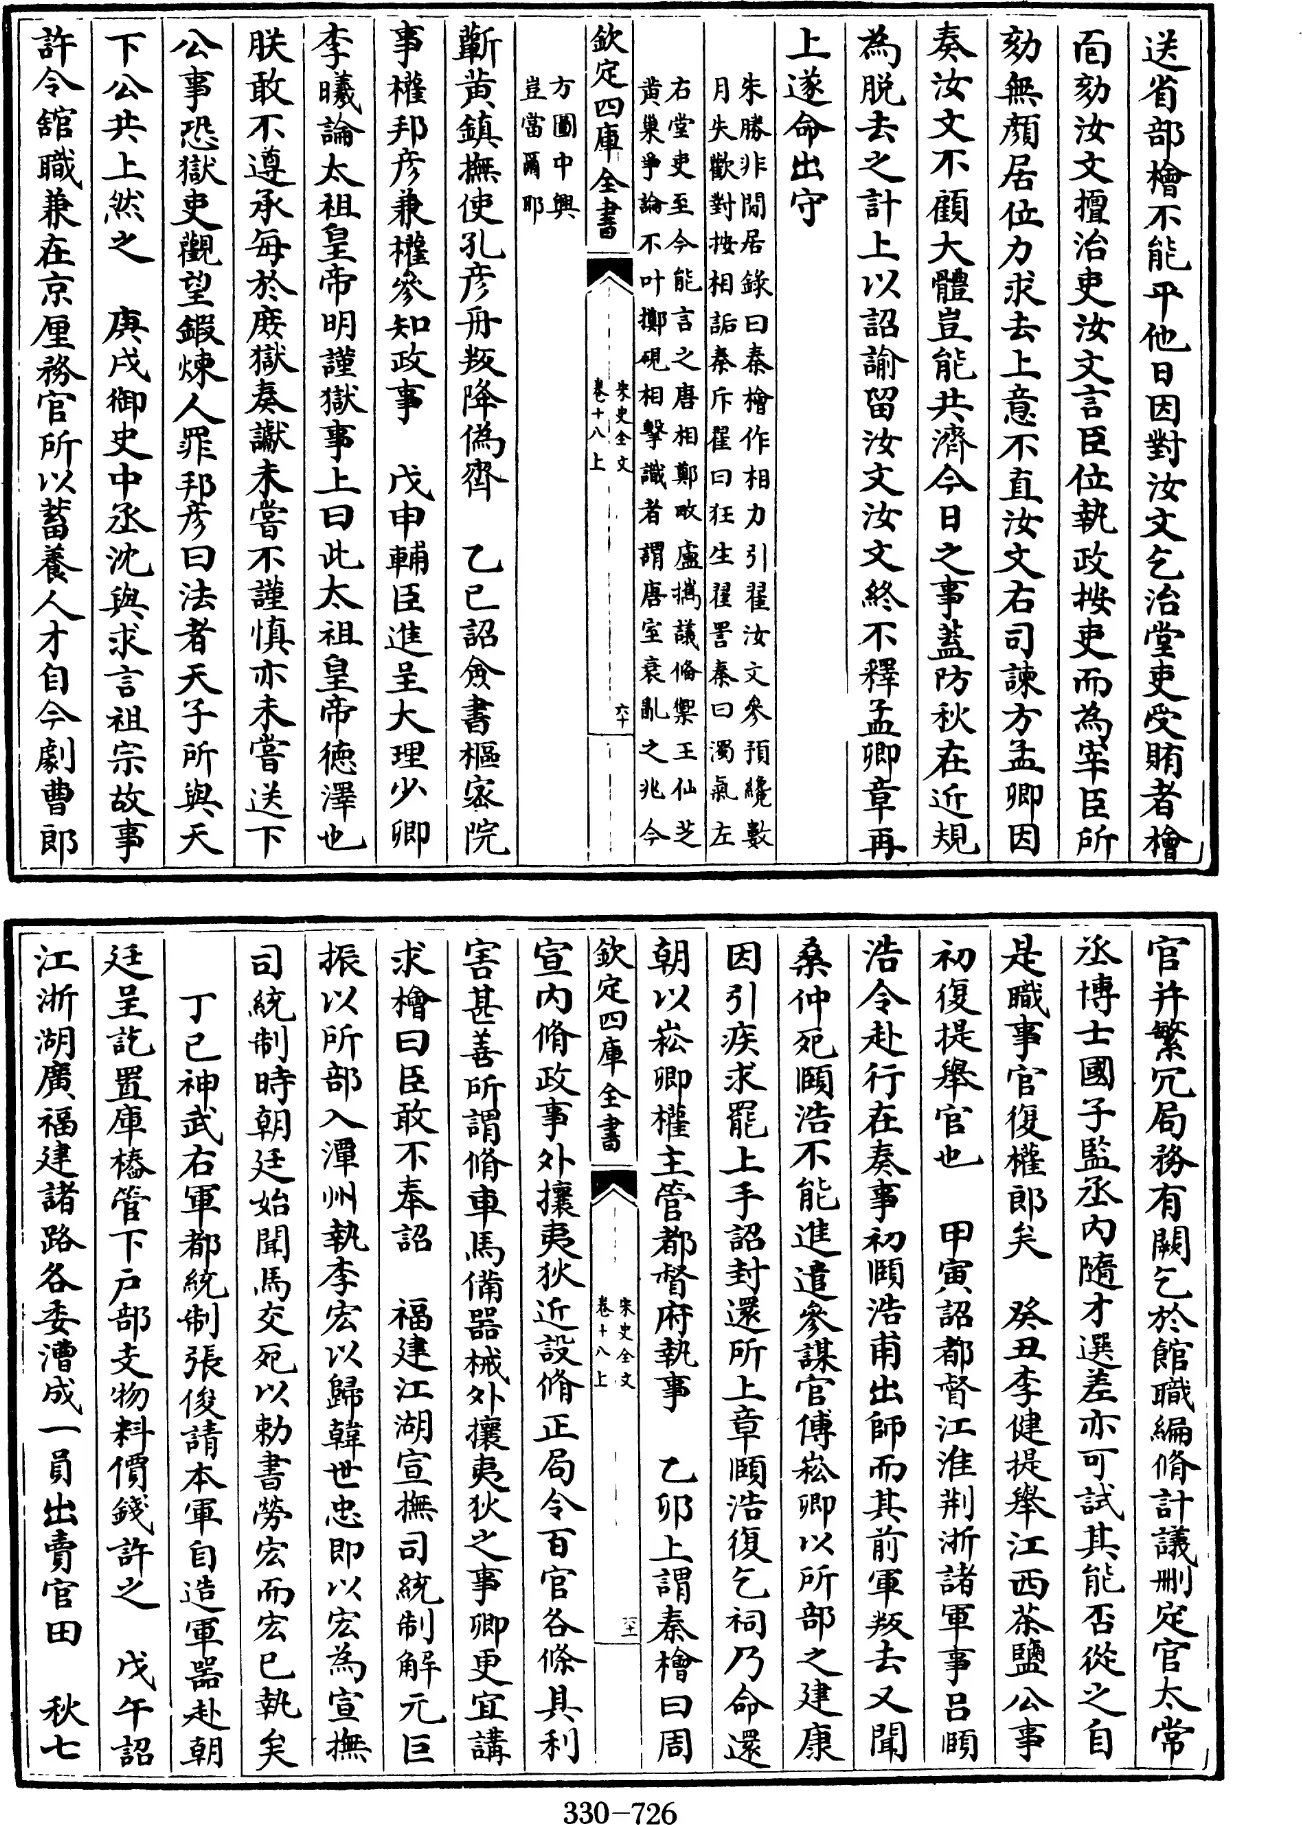 送省部檜不能平他日因對汝文乞治堂吏受賄者檜
面劾汝文擅治吏汝文言臣位執政按吏而為宰臣所
劾無顔居位力求去上意不直汝文右司諫方孟卿因
奏汝文不顧大體豈能共濟今日之事蓋防秋在近規
為脱去之計上以詔諭留汝文汝文終不釋孟卿章再
上遂命出守
朱勝非閒居錄曰秦檜作相力引翟汝文參預纔數
月失歡對按相詬秦斥翟曰狂生翟詈秦曰濁氣左
右堂吏至今能言之唐相鄭畋盧攜議脩禦王仙芝
黄巢爭論不叶擲硯相擊識者謂唐室衰亂之兆今
欽定四庫全書
宋史全文
卷十八上
六十
方圖中興
豈當爾耶
蘄黄鎮撫使孔彦舟叛降僞齊　乙巳詔僉書樞宻院
事權邦彦兼權參知政事　戊申輔臣進呈大理少卿
李曦論太祖皇帝明謹獄事上曰此太祖皇帝徳澤也
朕敢不遵承每於庶獄奏讞未嘗不謹慎亦未嘗送下
公事恐獄吏觀望鍜煉人罪邦彦曰法者天子所與天
下公共上然之　庚戌御史中丞沈與求言祖宗故事
許令舘職兼在京厘務官所以蓄養人才自今劇曹郎
官并繁冗局務有闕乞於館職編脩計議刪定官太常
丞博士國子監丞内隨才選差亦可試其能否從之自
是職事官復權郎矣　癸丑李健提舉江西茶鹽公事
初復提舉官也　甲寅詔都督江淮荆浙諸軍事吕頤
浩令赴行在奏事初頤浩甫出師而其前軍叛去又聞
桑仲死頤浩不能進遣參謀官傅崧卿以所部之建康
因引疾求罷上手詔封還所上章頤浩復乞祠乃命還
朝以崧卿權主管都督府執事　乙卯上謂秦檜曰周
欽定四庫全書
宋史全文
卷十八上
六十一
宣内脩政事外攘夷狄近設脩正局令百官各條具利
害甚善所謂脩車馬備器械外攘夷狄之事卿更宜講
求檜曰臣敢不奉詔　福建江湖宣撫司統制解元巨
振以所部入潭州執李宏以歸韓世忠即以宏為宣撫
司統制時朝廷始聞馬交死以勅書勞宏而宏已執矣
丁已神武右軍都統制張俊請本軍自造軍器赴朝
廷呈訖置庫樁管下户部支物料價錢許之　戊午詔
江浙湖廣福建諸路各委漕成一員出賣官田　秋七
330-726